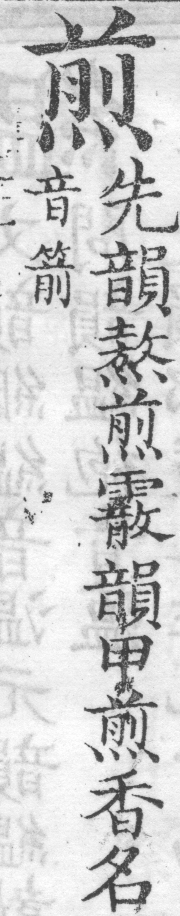 煎
先韻熬煎霰韻甲煎香名
音箭